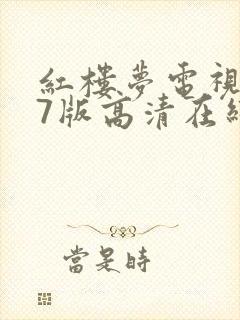 紅樓夢電視
7版高清在
當是時